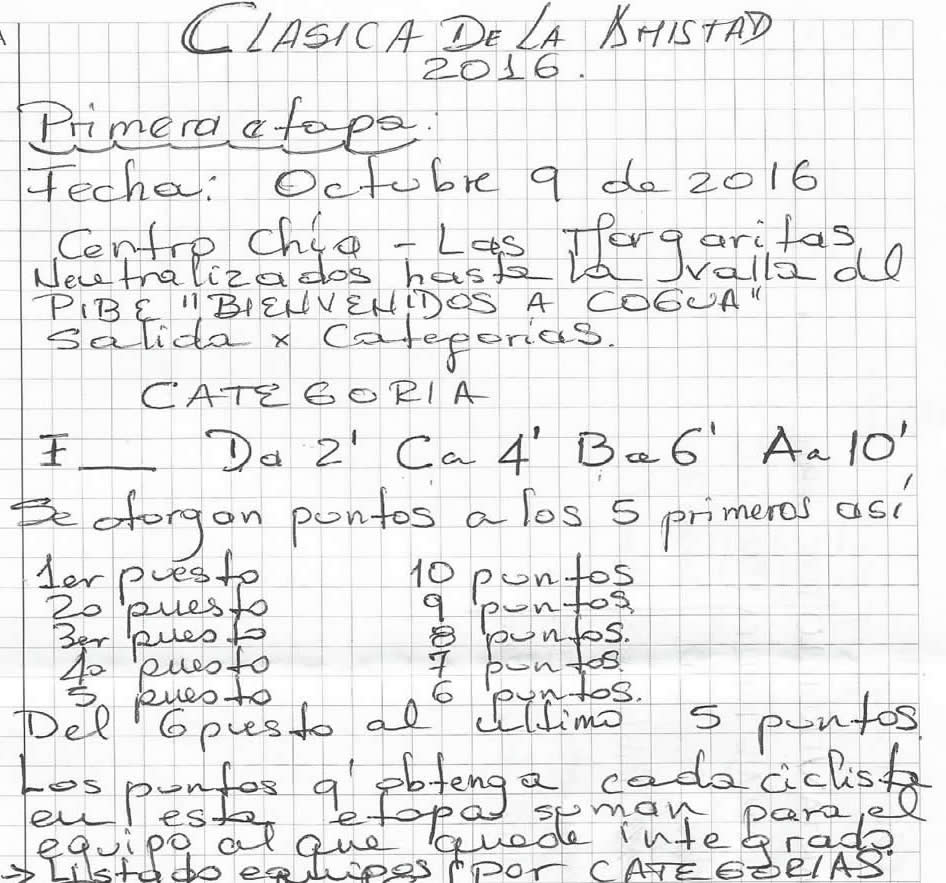 CLASICA DE LA AMISTAD
2016.
Primera etapa:
Fecha: Octubre 9 de 2016
Centro Chía - Las Margaritas
Neutralizados hasta la valla del
PIBE "BIENVENIDOS A COGUA"
Salida x Categorias.
CATEGORIA
I___ Da 2' Ca 4' Ba 6' Aa 10'
Se otorgan puntos a los 5 primeros así
1er puesto 10 puntos
2o puesto 9 puntos
3er puesto 8 puntos.
4o puesto 7 puntos.
5 puesto 6 puntos.
Del 6 puesto al ultimo 5 puntos.
Los puntos q' obtenga cada ciclista
en esta etapa suman para el
equipo al que quede integrado
→ Listado equipos por CATEGORIAS